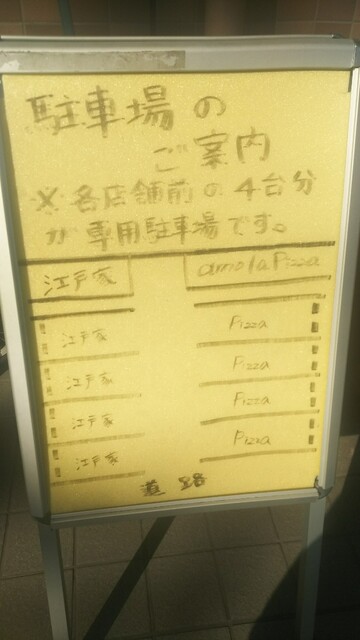 駐車場の
ご案内
※各店舗前の4台分
が専用駐車場です。
江戸家 amolaPizza
江戸家 Pizza
江戸家 Pizza
江戸家 Pizza
江戸家 Pizza
道路